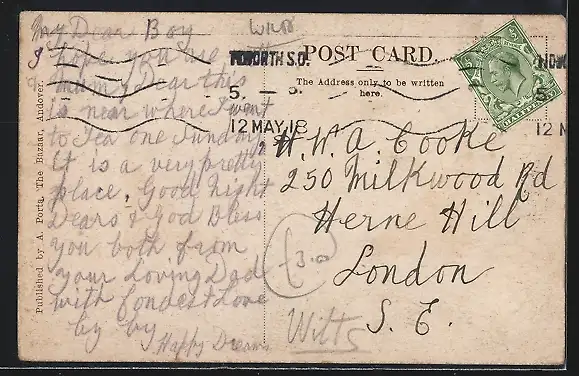 My Dear Boy
I hope you are
Mum my dear this
is near where I went
to Tea one Sunday
It is a very pretty
place. Good Night
Dears & God Bless
you both from
your Loving Dad
with Fondest Love
by by
Happy Dreams
POST CARD.
The Address only to be written
here.
5. - 5.
12 MAY. 18
12 M
5
H. W. A. Cooke
250 Milkwood Rd
Herne Hill
London
S. E.
3.0
Wilts
Published by A. Porta, The Bazaar, Andover.